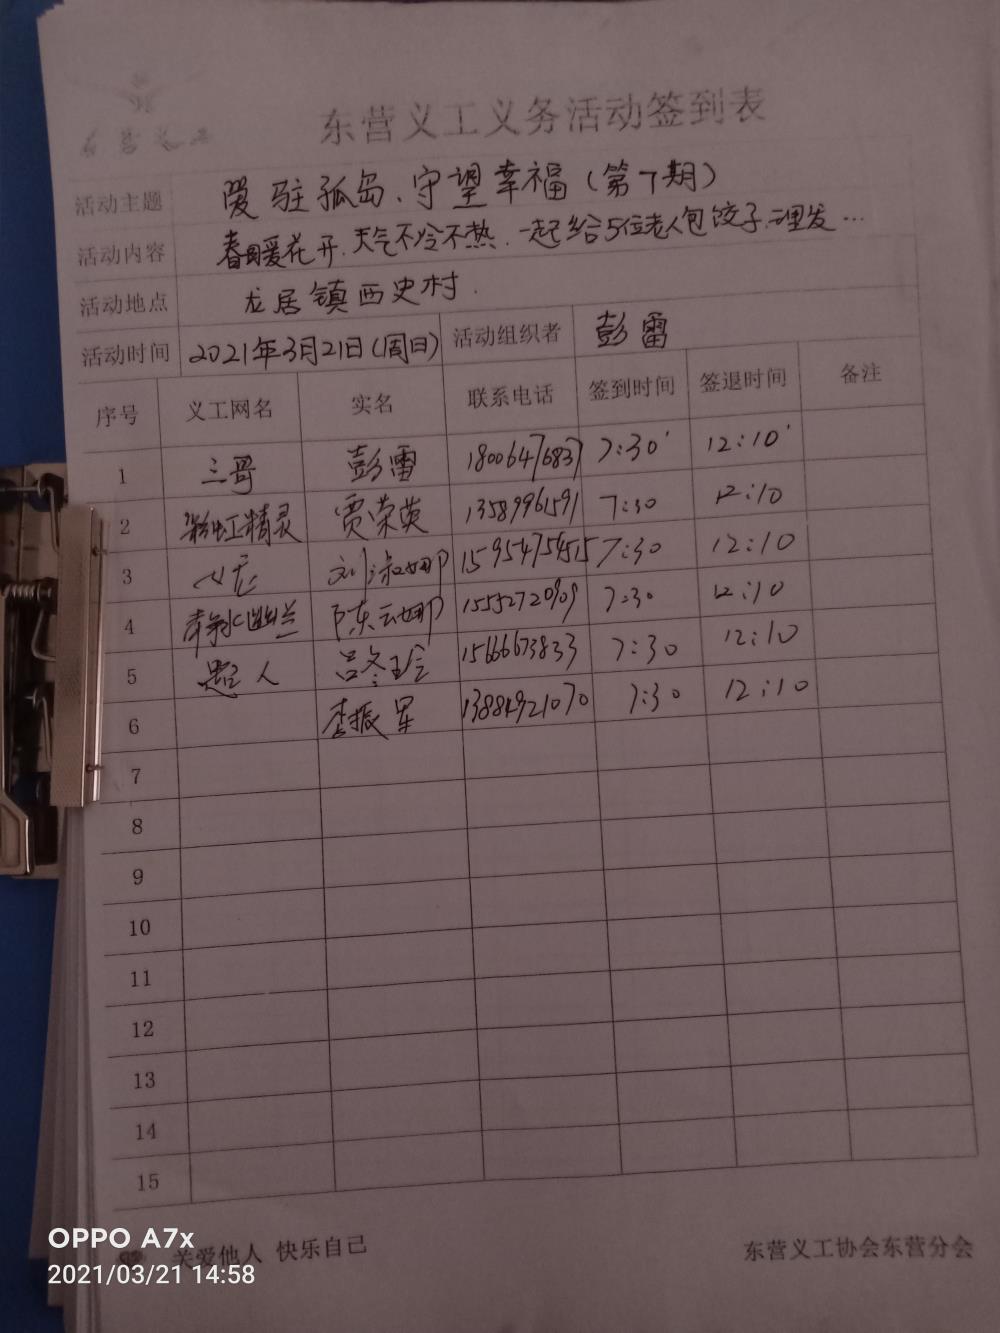 东营义工
东营义工义务活动签到表
活动主题 爱驻孤岛、守望幸福(第7期)
活动内容 春暖花开、天气不冷不热、一起给5位老人包饺子、理发…
活动地点 龙居镇西史村.
活动时间 2021年3月21日(周日) 活动组织者 彭雷
序号 义工网名 实名 联系电话 签到时间 签退时间 备注
1 三哥 彭雷 18006476837 7:30' 12:10'
2 彩虹精灵 贾荣英 13589961591 7:30 12:10
3 刘淑娜 15954754515 7:30 12:10
4 静水幽兰 陈云娜 15552720909 7:30 12:10
5 超人 吕冬玲 15666673833 7:30 12:10
6 李振星 13884921070 7:30 12:10
7
8
9
10
11
12
13
14
15
关爱他人 快乐自己 东营义工协会东营分会
OPPO A7x
2021/03/21 14:58